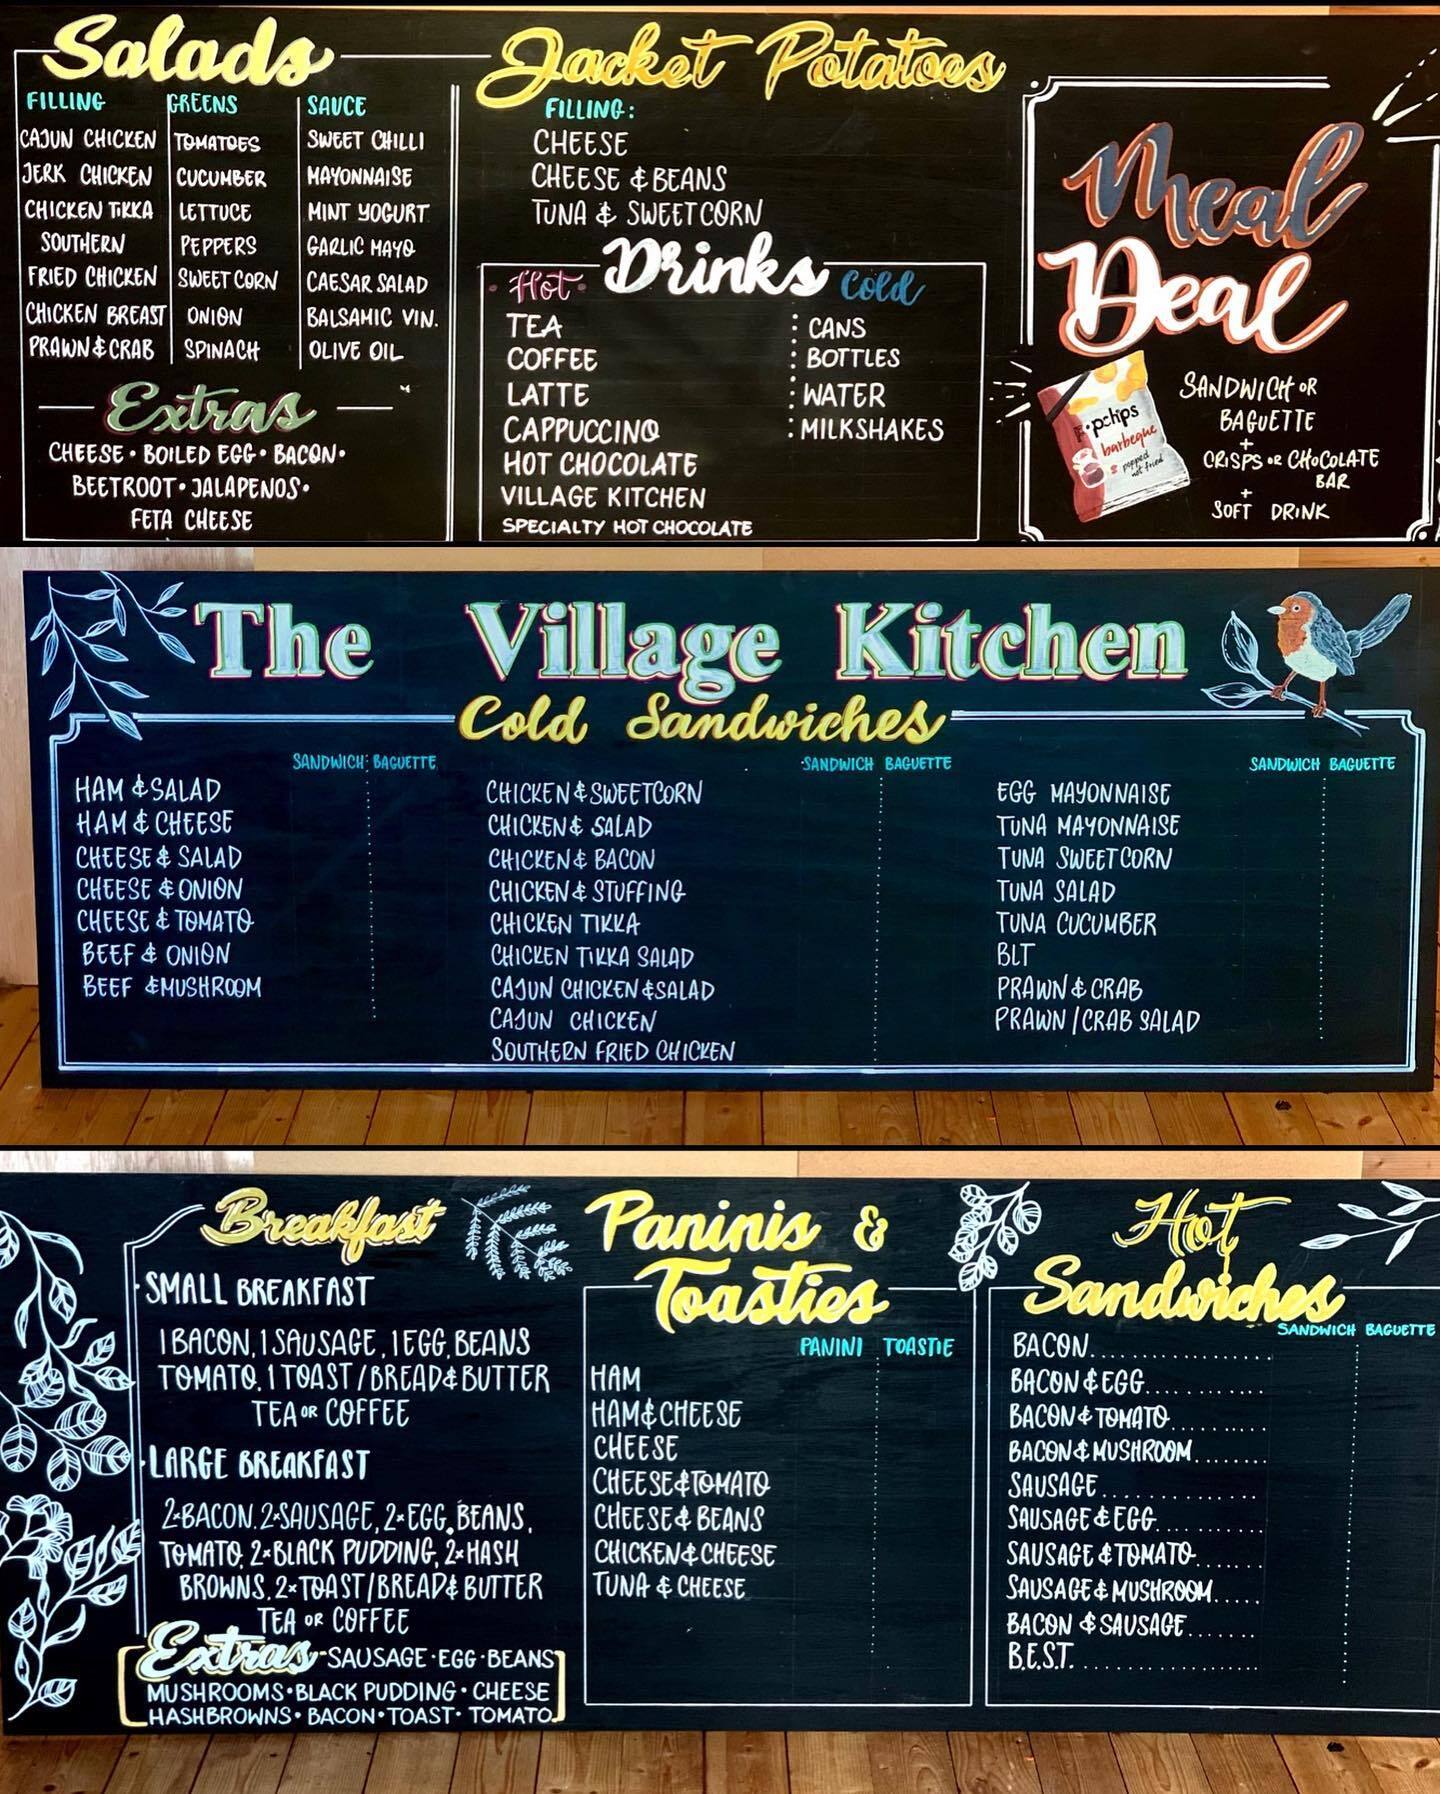 Salads
FILLING
CAJUN CHICKEN
JERK CHICKEN
CHICKEN TIKKA
SOUTHERN
FRIED CHICKEN
CHICKEN BREAST
PRAWN & CRAB
GREENS
TOMATOES
CUCUMBER
LETTUCE
PEPPERS
SWEETCORN
ONION
SPINACH
SAUCE
SWEET CHILLI
MAYONNAISE
MINT YOGURT
GARLIC MAYO
CAESAR SALAD
BALSAMIC VIN.
OLIVE OIL
Extras
CHEESE • BOILED EGG • BACON •
BEETROOT • JALAPENOS •
FETA CHEESE
Jacket Potatoes
FILLING:
CHEESE
CHEESE & BEANS
TUNA & SWEETCORN
Drinks
Hot
TEA
COFFEE
LATTE
CAPPUCCINO
HOT CHOCOLATE
VILLAGE KITCHEN
SPECIALTY HOT CHOCOLATE
Cold
CANS
BOTTLES
WATER
MILKSHAKES
Meal
Deal
barbeque
popped
not fried
SANDWICH OR
BAGUETTE
+
CRISPS OR CHOCOLATE
BAR
+
SOFT DRINK
The Village Kitchen
Cold Sandwiches
SANDWICH BAGUETTE
HAM & SALAD
HAM & CHEESE
CHEESE & SALAD
CHEESE & ONION
CHEESE & TOMATO
BEEF & ONION
BEEF & MUSHROOM
SANDWICH BAGUETTE
CHICKEN & SWEETCORN
CHICKEN & SALAD
CHICKEN & BACON
CHICKEN & STUFFING
CHICKEN TIKKA
CHICKEN TIKKA SALAD
CAJUN CHICKEN & SALAD
CAJUN CHICKEN
SOUTHERN FRIED CHICKEN
SANDWICH BAGUETTE
EGG MAYONNAISE
TUNA MAYONNAISE
TUNA SWEETCORN
TUNA SALAD
TUNA CUCUMBER
BLT
PRAWN & CRAB
PRAWN / CRAB SALAD
Breakfast
SMALL BREAKFAST
1 BACON, 1 SAUSAGE, 1 EGG, BEANS
TOMATO, 1 TOAST / BREAD & BUTTER
TEA OR COFFEE
LARGE BREAKFAST
2×BACON, 2×SAUSAGE, 2×EGG, BEANS,
TOMATO, 2×BLACK PUDDING, 2×HASH
BROWNS, 2×TOAST/BREAD & BUTTER
TEA OR COFFEE
Extras • SAUSAGE • EGG • BEANS
MUSHROOMS • BLACK PUDDING • CHEESE
HASHBROWNS • BACON • TOAST • TOMATO
Paninis &
Toasties
PANINI TOASTIE
HAM
HAM & CHEESE
CHEESE
CHEESE & TOMATO
CHEESE & BEANS
CHICKEN & CHEESE
TUNA & CHEESE
Hot
Sandwiches
SANDWICH BAGUETTE
BACON
BACON & EGG
BACON & TOMATO
BACON & MUSHROOM
SAUSAGE
SAUSAGE & EGG
SAUSAGE & TOMATO
SAUSAGE & MUSHROOM
BACON & SAUSAGE
B.E.S.T.